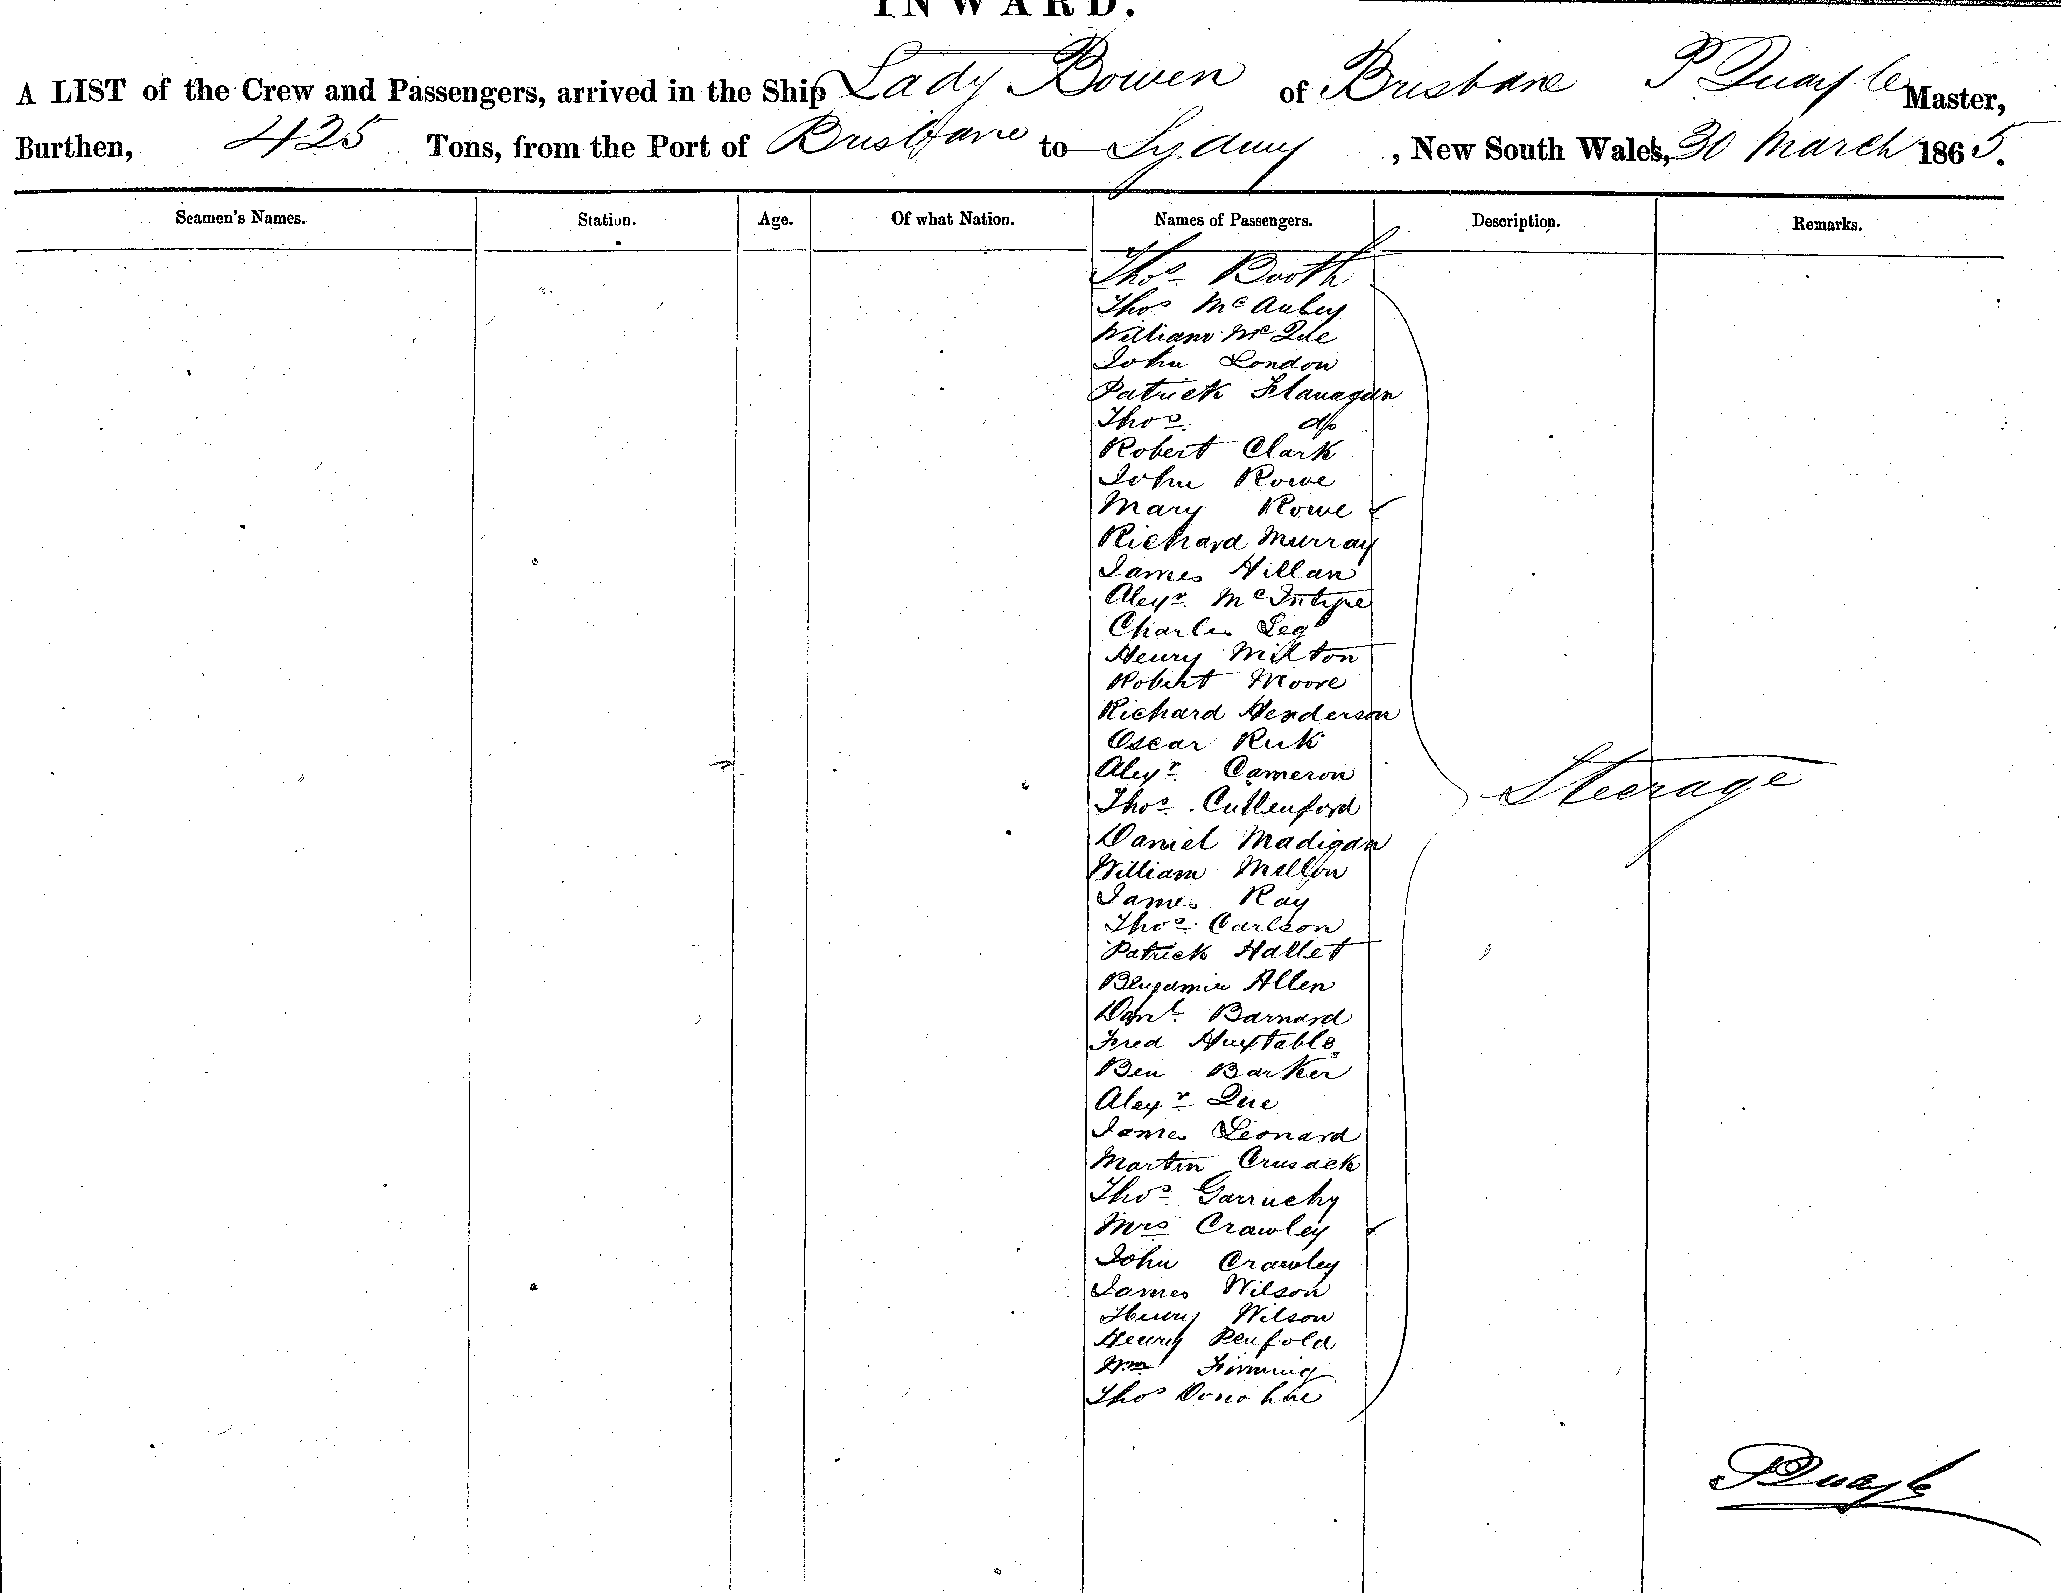 INWARD.
A LIST of the Crew and Passengers, arrived in the Ship Lady Bowen of Brisbane P Quayle Master,
Burthen, 425 Tons, from the Port of Brisbane to Sydney, New South Wales, 30 March 1865.
Seamen's Names. Station. Age. Of what Nation. Names of Passengers. Description. Remarks.
Thos Booth
Thos McAuley
William McQue
John London
Patrick Flanagan
Thos do
Robert Clark
John Rowe
Mary Rowe
Richard Murray
James Hillan
Alexr McIntyre
Charles Leg
Henry Milton
Robert Moore
Richard Henderson
Oscar Ruk
Alexr Cameron
Steerage
Thos Cullenford
Daniel Madigan
William Mellon
James Ray
Thos Carlson
Patrick Hallet
Benjamin Allen
Danl Barnard
Fred Huxtable
Ben Barker
Alexr Que
James Leonard
Martin Crusack
Thos Garruchy
Mrs Crawley
John Crawley
James Wilson
Henry Wilson
Henry Penfold
Wm
Thos Donohue
P Quayle